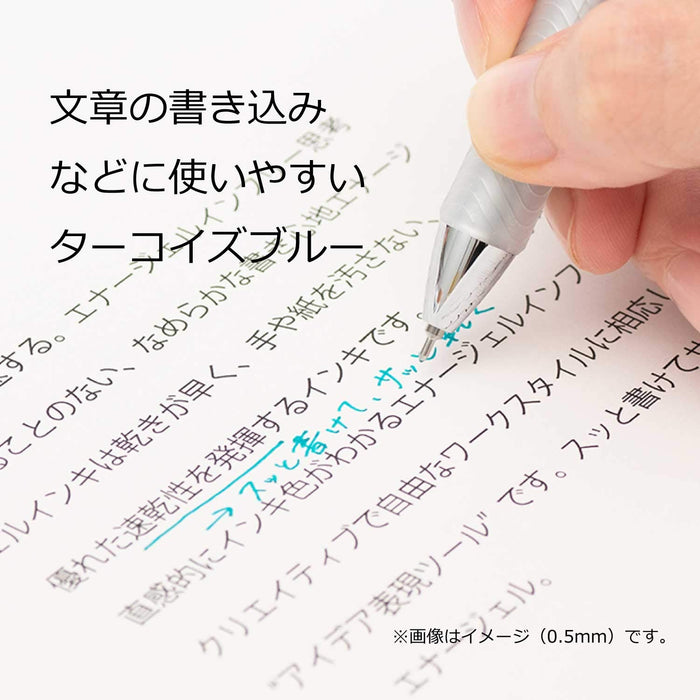 文章の書き込み
などに使いやすい
ターコイズブルー
エナージェルインフリー思考
する。エナージェルインフ
ることのない、なめらかな書き心地エナージ
ルインキは乾きが早く、手や紙を汚さない、
優れた速乾性を発揮するインキです。
→スッと書けて、サッとキレ
直感的にインキ色がわかるエナージェルインフ
クリエイティブで自由なワークスタイルに相応し
"アイデア表現ツール"です。スッと書けてサ
エナージェル。
※画像はイメージ（0.5mm）です。